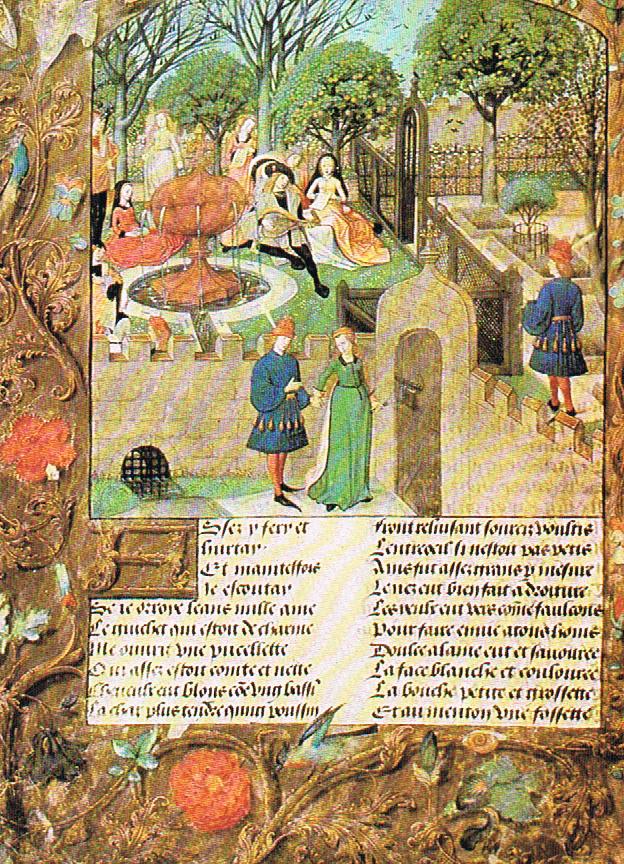 Assez y fery et
hurtay
Et maintesfois
Je escoutay
Se ie orroye leans nulle ame
Le guichet qui estoit de charme
Me ouvrit vne pucellette
Qui assez estoit cointe et nette
Cheveulx eut blons cõe vng bassĩ
La char plus tendre qung poussin
Front reluisant sourcz voultis
Lentreoeil si nestoit pas petis
Ains fut assez grans p mesure
Le nez eut bien fait a droiture
Les yeulx eut vers cõme faulcons
Pour faire enuie a tous homs
Doulce alaine eut et sauouree
La face blanche et coulouree
La bouche petite et grossette
Et au menton vne fossette